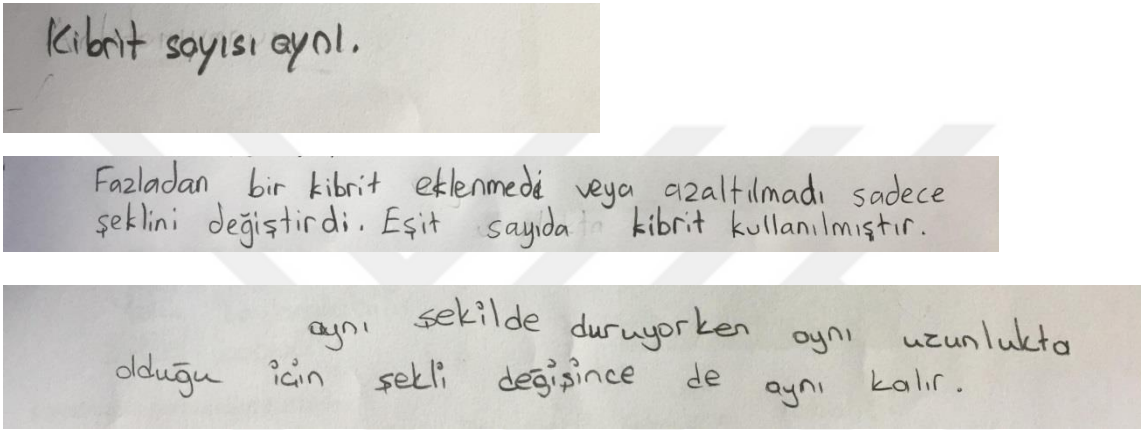 Kibrit sayısı aynı.
Fazladan bir kibrit eklenmedi veya azaltılmadı sadece
şeklini değiştirdi. Eşit sayıda kibrit kullanılmıştır.
aynı şekilde duruyorken aynı uzunlukta
olduğu için şekli değişince de aynı kalır.